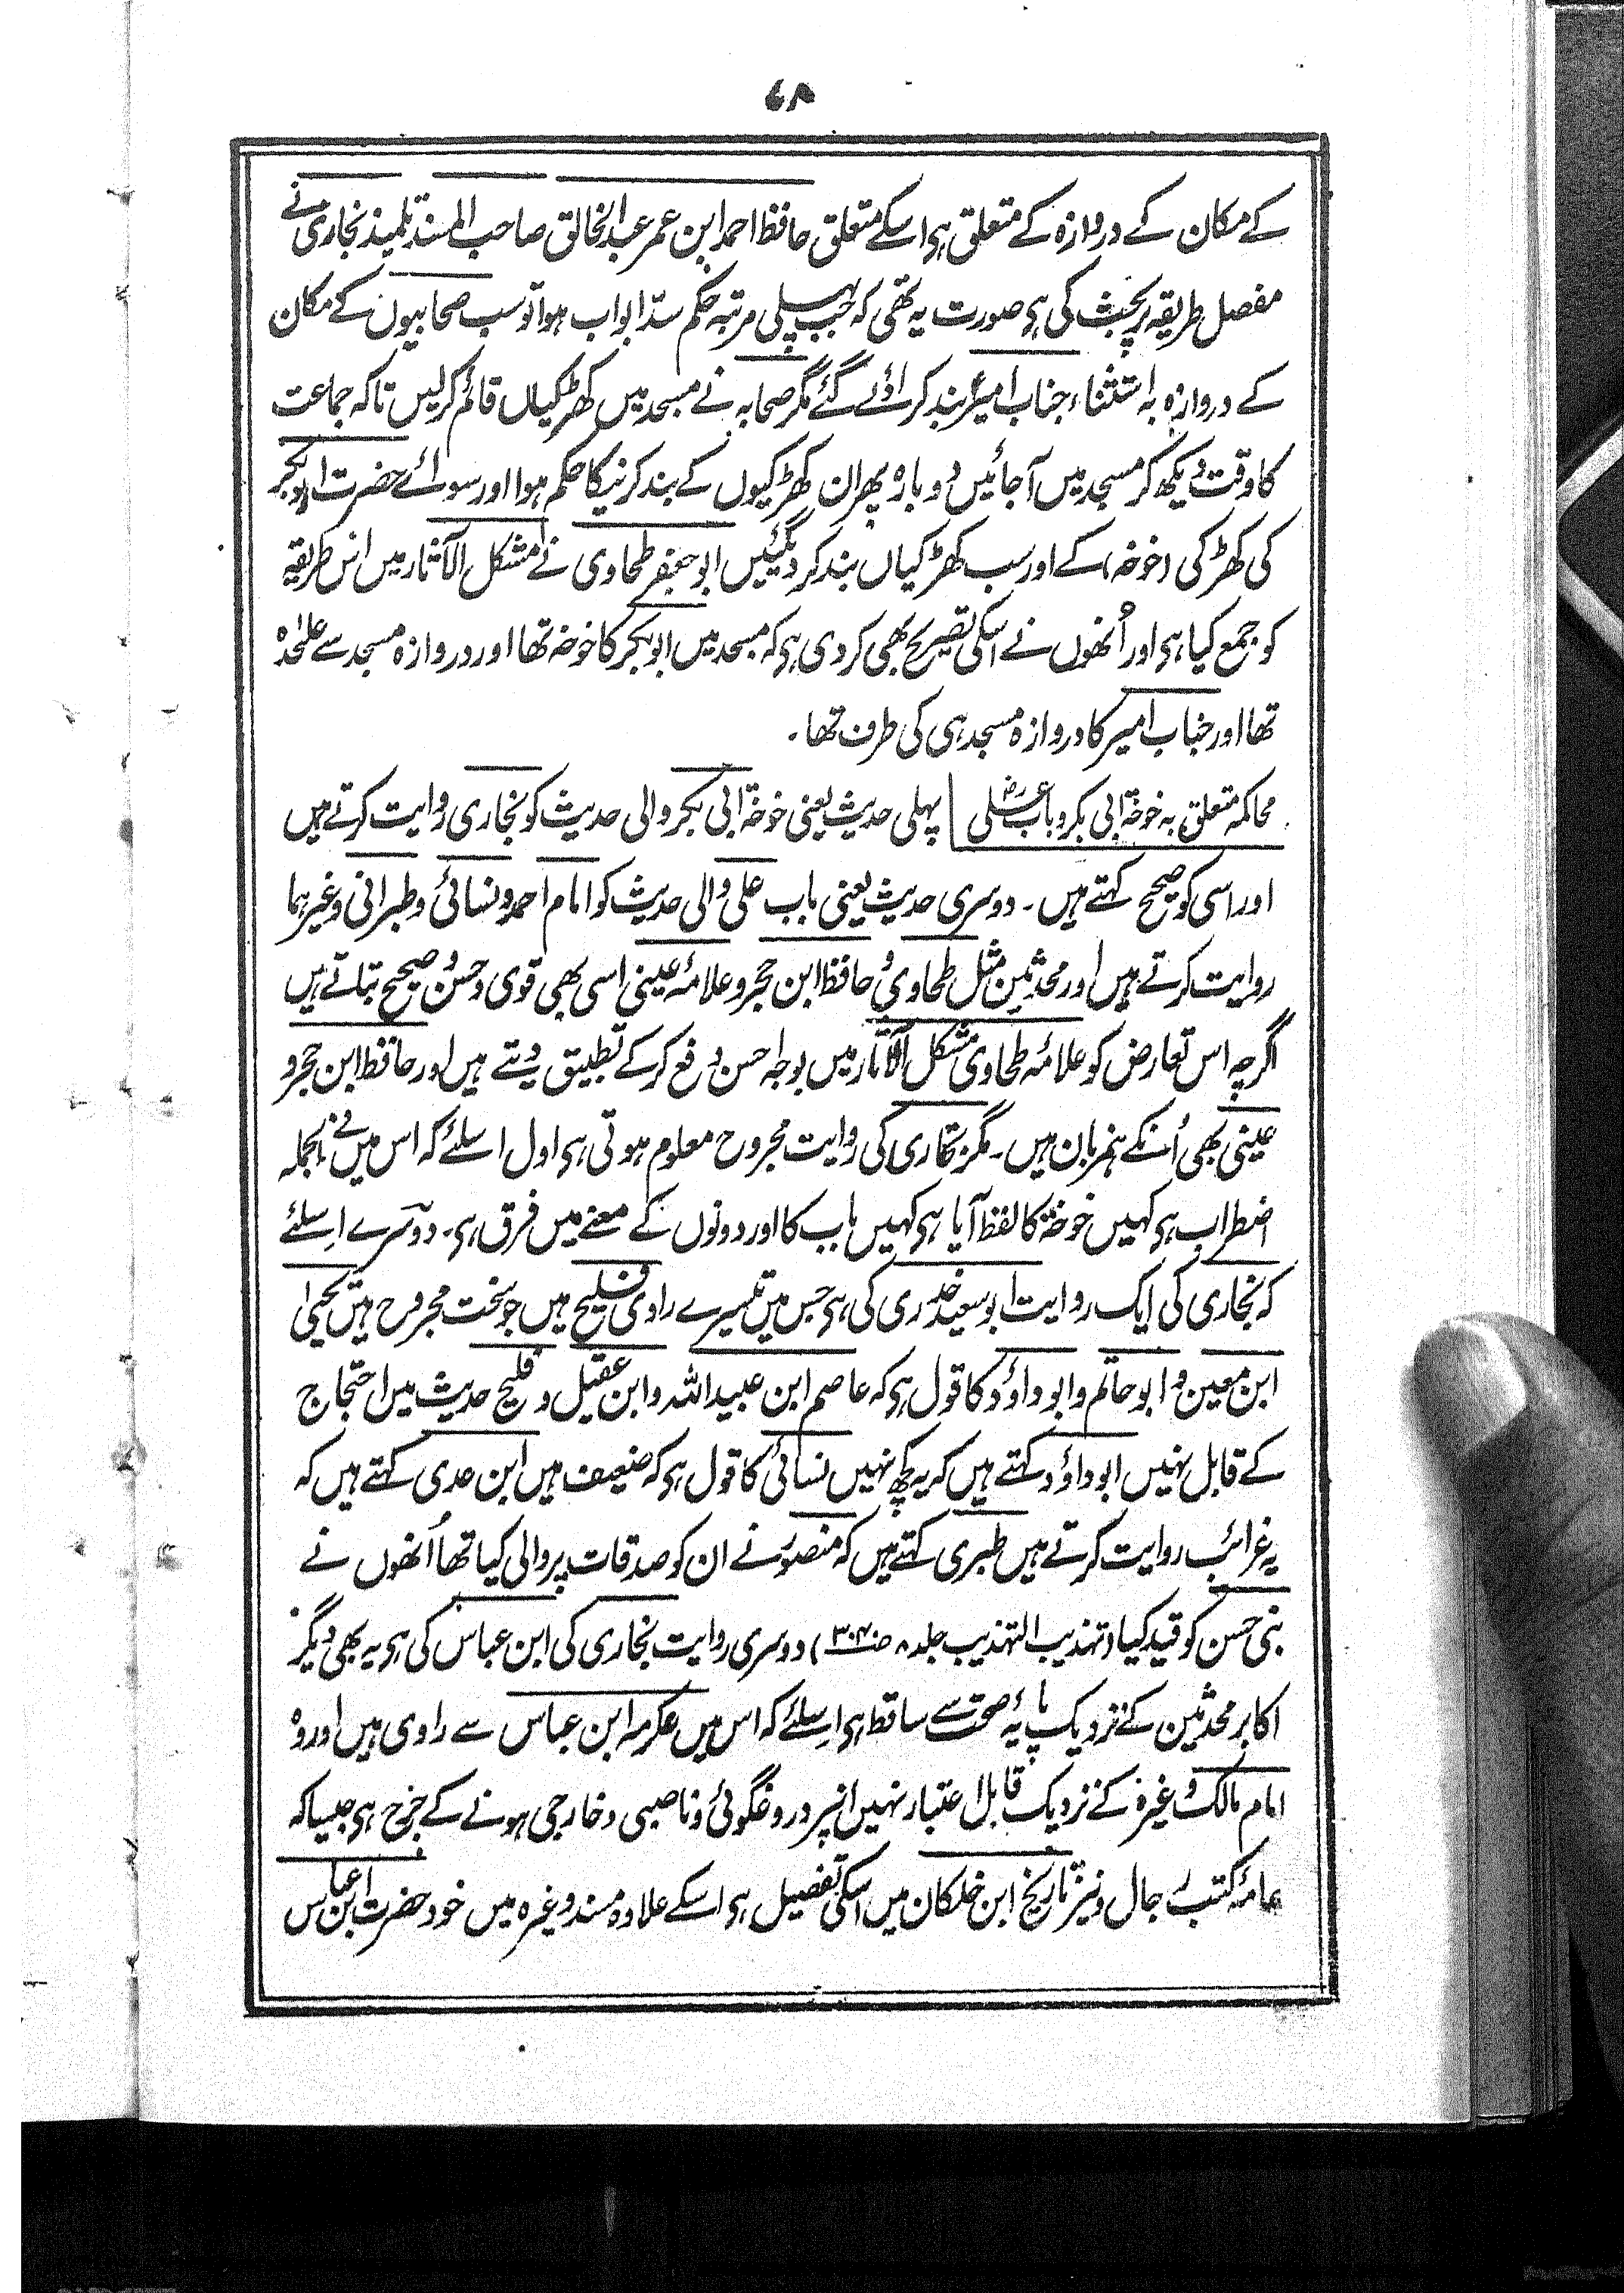 ۶۸
کے مکان کے دروازہ کے متعلق ہی اسکے متعلق حافظ احمد ابن عمر عبد الخالق صاحب المسند تلمیذ بخاری نے
مفصل طریقہ پر بحث کی ہی صورت یہ تھی کہ جب پہلی مرتبہ حکم سدّ ابواب ہوا تو سب صحابیوں کے مکان
کے دروازہ بہ استثناء جناب امیرؑ بند کر ادئے گئے مگر صحابہ نے مسجد میں کھڑکیاں قائم کر لیں تاکہ جماعت
کا وقت دیکھ کر مسجد میں آجائیں دوبارہ پھر ان کھڑکیوں کے بند کرنیکا حکم ہوا اور سوائے حضرت ابوبکر
کی کھڑکی (خوخہ) کے اور سب کھڑکیاں بند کر دیگئیں ابو جعفر طحاوی نے مشکل الآثار میں اس طریقہ
کو جمع کیا ہی اور اُنھوں نے اسکی تصریح بھی کر دی ہی کہ مسجد میں ابوبکر کا خوخہ تھا اور دروازہ مسجد سے علٰحدہ
تھا اور جناب امیر کا دروازہ مسجد ہی کی طرف تھا۔
محاکمہ متعلق بہ خوخۃ ابی بکر و باب علی رضؓ | پہلی حدیث یعنی خوخۃ ابی بکر والی حدیث کو بخاری روایت کرتے ہیں
اور اسی کو صحیح کہتے ہیں۔ دوسری حدیث یعنی باب علی والی حدیث کو امام احمد و نسائی و طبرانی وغیرہما
روایت کرتے ہیں اور محدثین مثل طحاوی و حافظ ابن حجر و علامۂ عینی اسی بھی قوی و حسن و صحیح بتاتے ہیں
اگرچہ اس تعارض کو علامۂ طحاوی مشکل الآثار میں بوجہ احسن دفع کر کے تطبیق دیتے ہیں اور حافظ ابن حجر و
عینی بھی اُنکے ہمزبان ہیں۔ مگر بخاری کی روایت مجروح معلوم ہوتی ہی اول اسلئے کہ اس میں فی الجملہ
اضطراب ہی کہیں خوخۃ کا لفظ آیا ہی کہیں باب کا اور دونوں کے معنے میں فرق ہی۔ دوسرے اِسلئے
کہ بخاری کی ایک روایت ابو سعید خدری کی ہی جس میں تیسرے راوی فلیح ہیں جو سخت مجروح ہیں یحییٰ
ابن معین و ابو حاتم و ابو داؤد کا قول ہی کہ عاصم ابن عبید اللہ و ابن عقیل و فلیح حدیث میں احتجاج
کے قابل نہیں ابو داؤد کہتے ہیں کہ یہ کچھ نہیں نسائی کا قول ہی کہ ضعیف ہیں ابن عدی کہتے ہیں کہ
یہ غرائب روایت کرتے ہیں طبری کہتے ہیں کہ منصور نے ان کو صدقات پر والی کیا تھا اُنھوں نے
بنی حسن کو قید کیا (تہذیب التہذیب جلد ۸ صفہ ۳۰۴) دوسری روایت بخاری کی ابن عباس کی ہی یہ بھی دیگر
اکابر محدثین کے نزدیک پایۂ صحت سے ساقط ہی اِسلئے کہ اس میں عکرمہ ابن عباس سے راوی ہیں اور وہ
امام مالک وغیرہ کے نزدیک قابل اعتبار نہیں انپر دروغگوئی و ناصبی و خارجی ہونے کے جرح ہی جیسا کہ
عامۂ کتب رجال و نیز تاریخ ابن خلکان میں اسکی تفصیل ہی اسکے علاوہ مسند وغیرہ میں خود حضرت ابن عباس